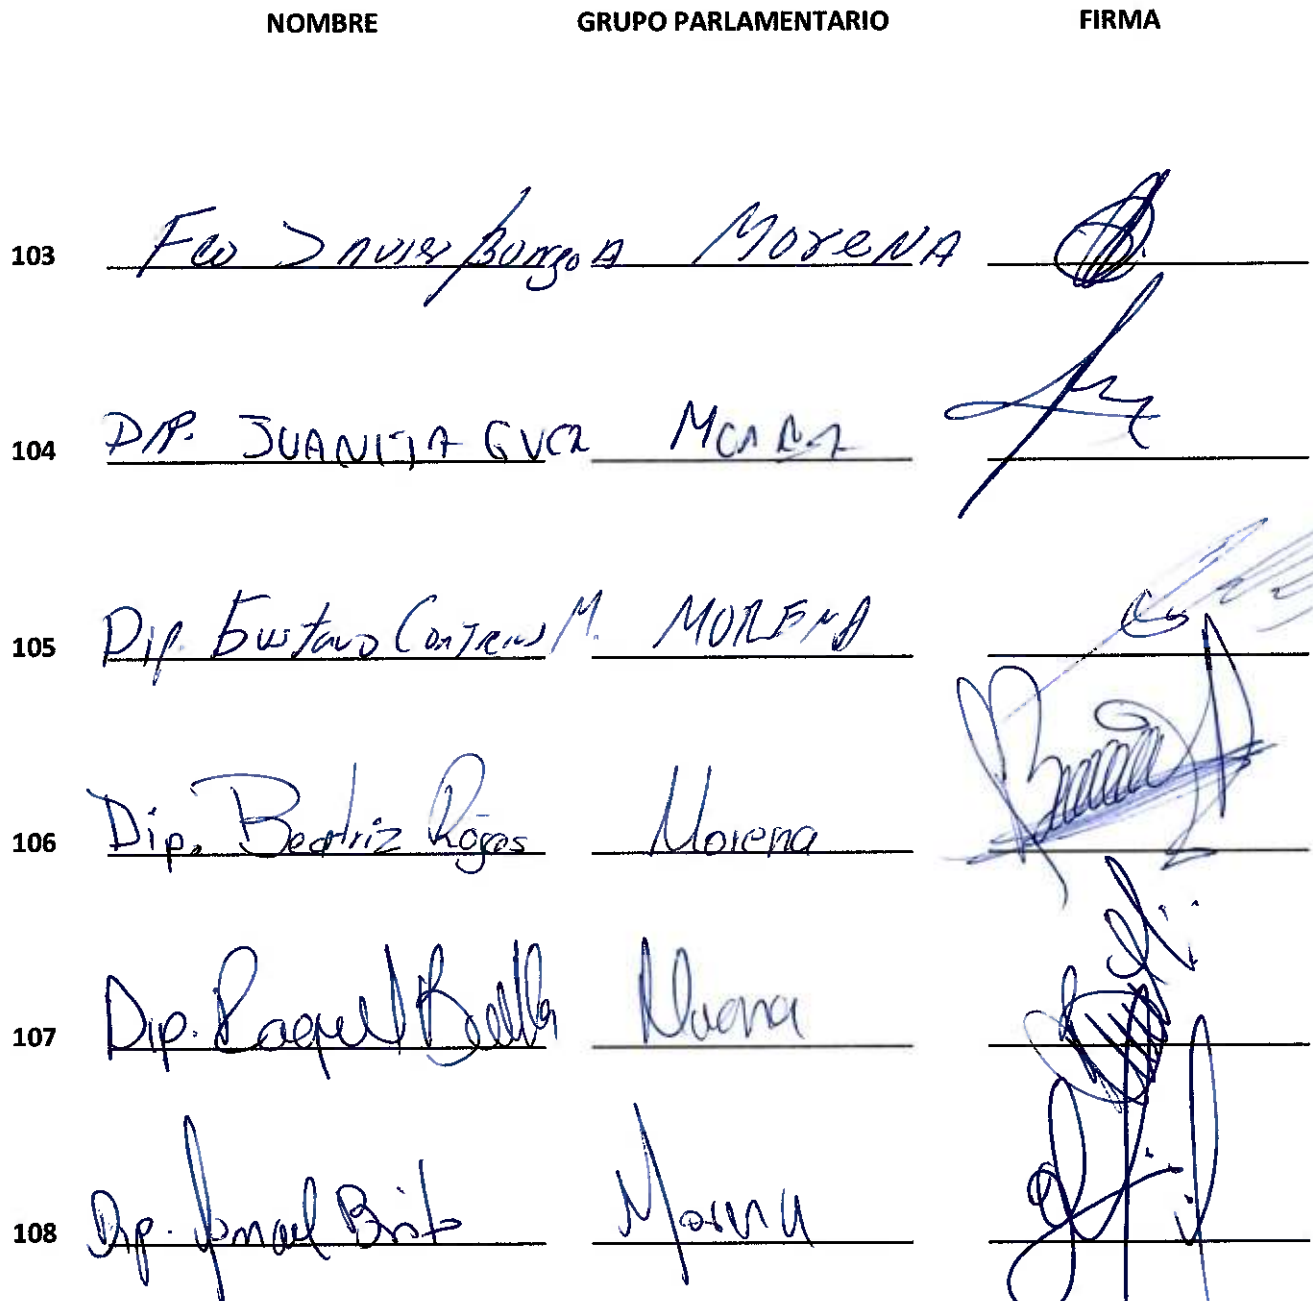 NOMBRE GRUPO PARLAMENTARIO FIRMA
103 Fco Javier Burgoa Morena
104 Dip. JUANITA GUER Morena
105 Dip. Gustavo Contreras M. MORENA
106 Dip. Beatriz Rojas Morena
107 Dip. Raquel Bonilla Morena
108 Dip. Ismael Brito Morena